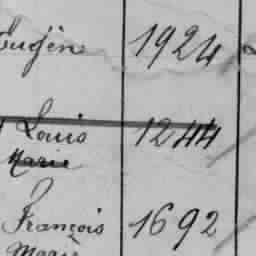 Eugène 1924
Louis 1244
Marie
François 1692
Marie